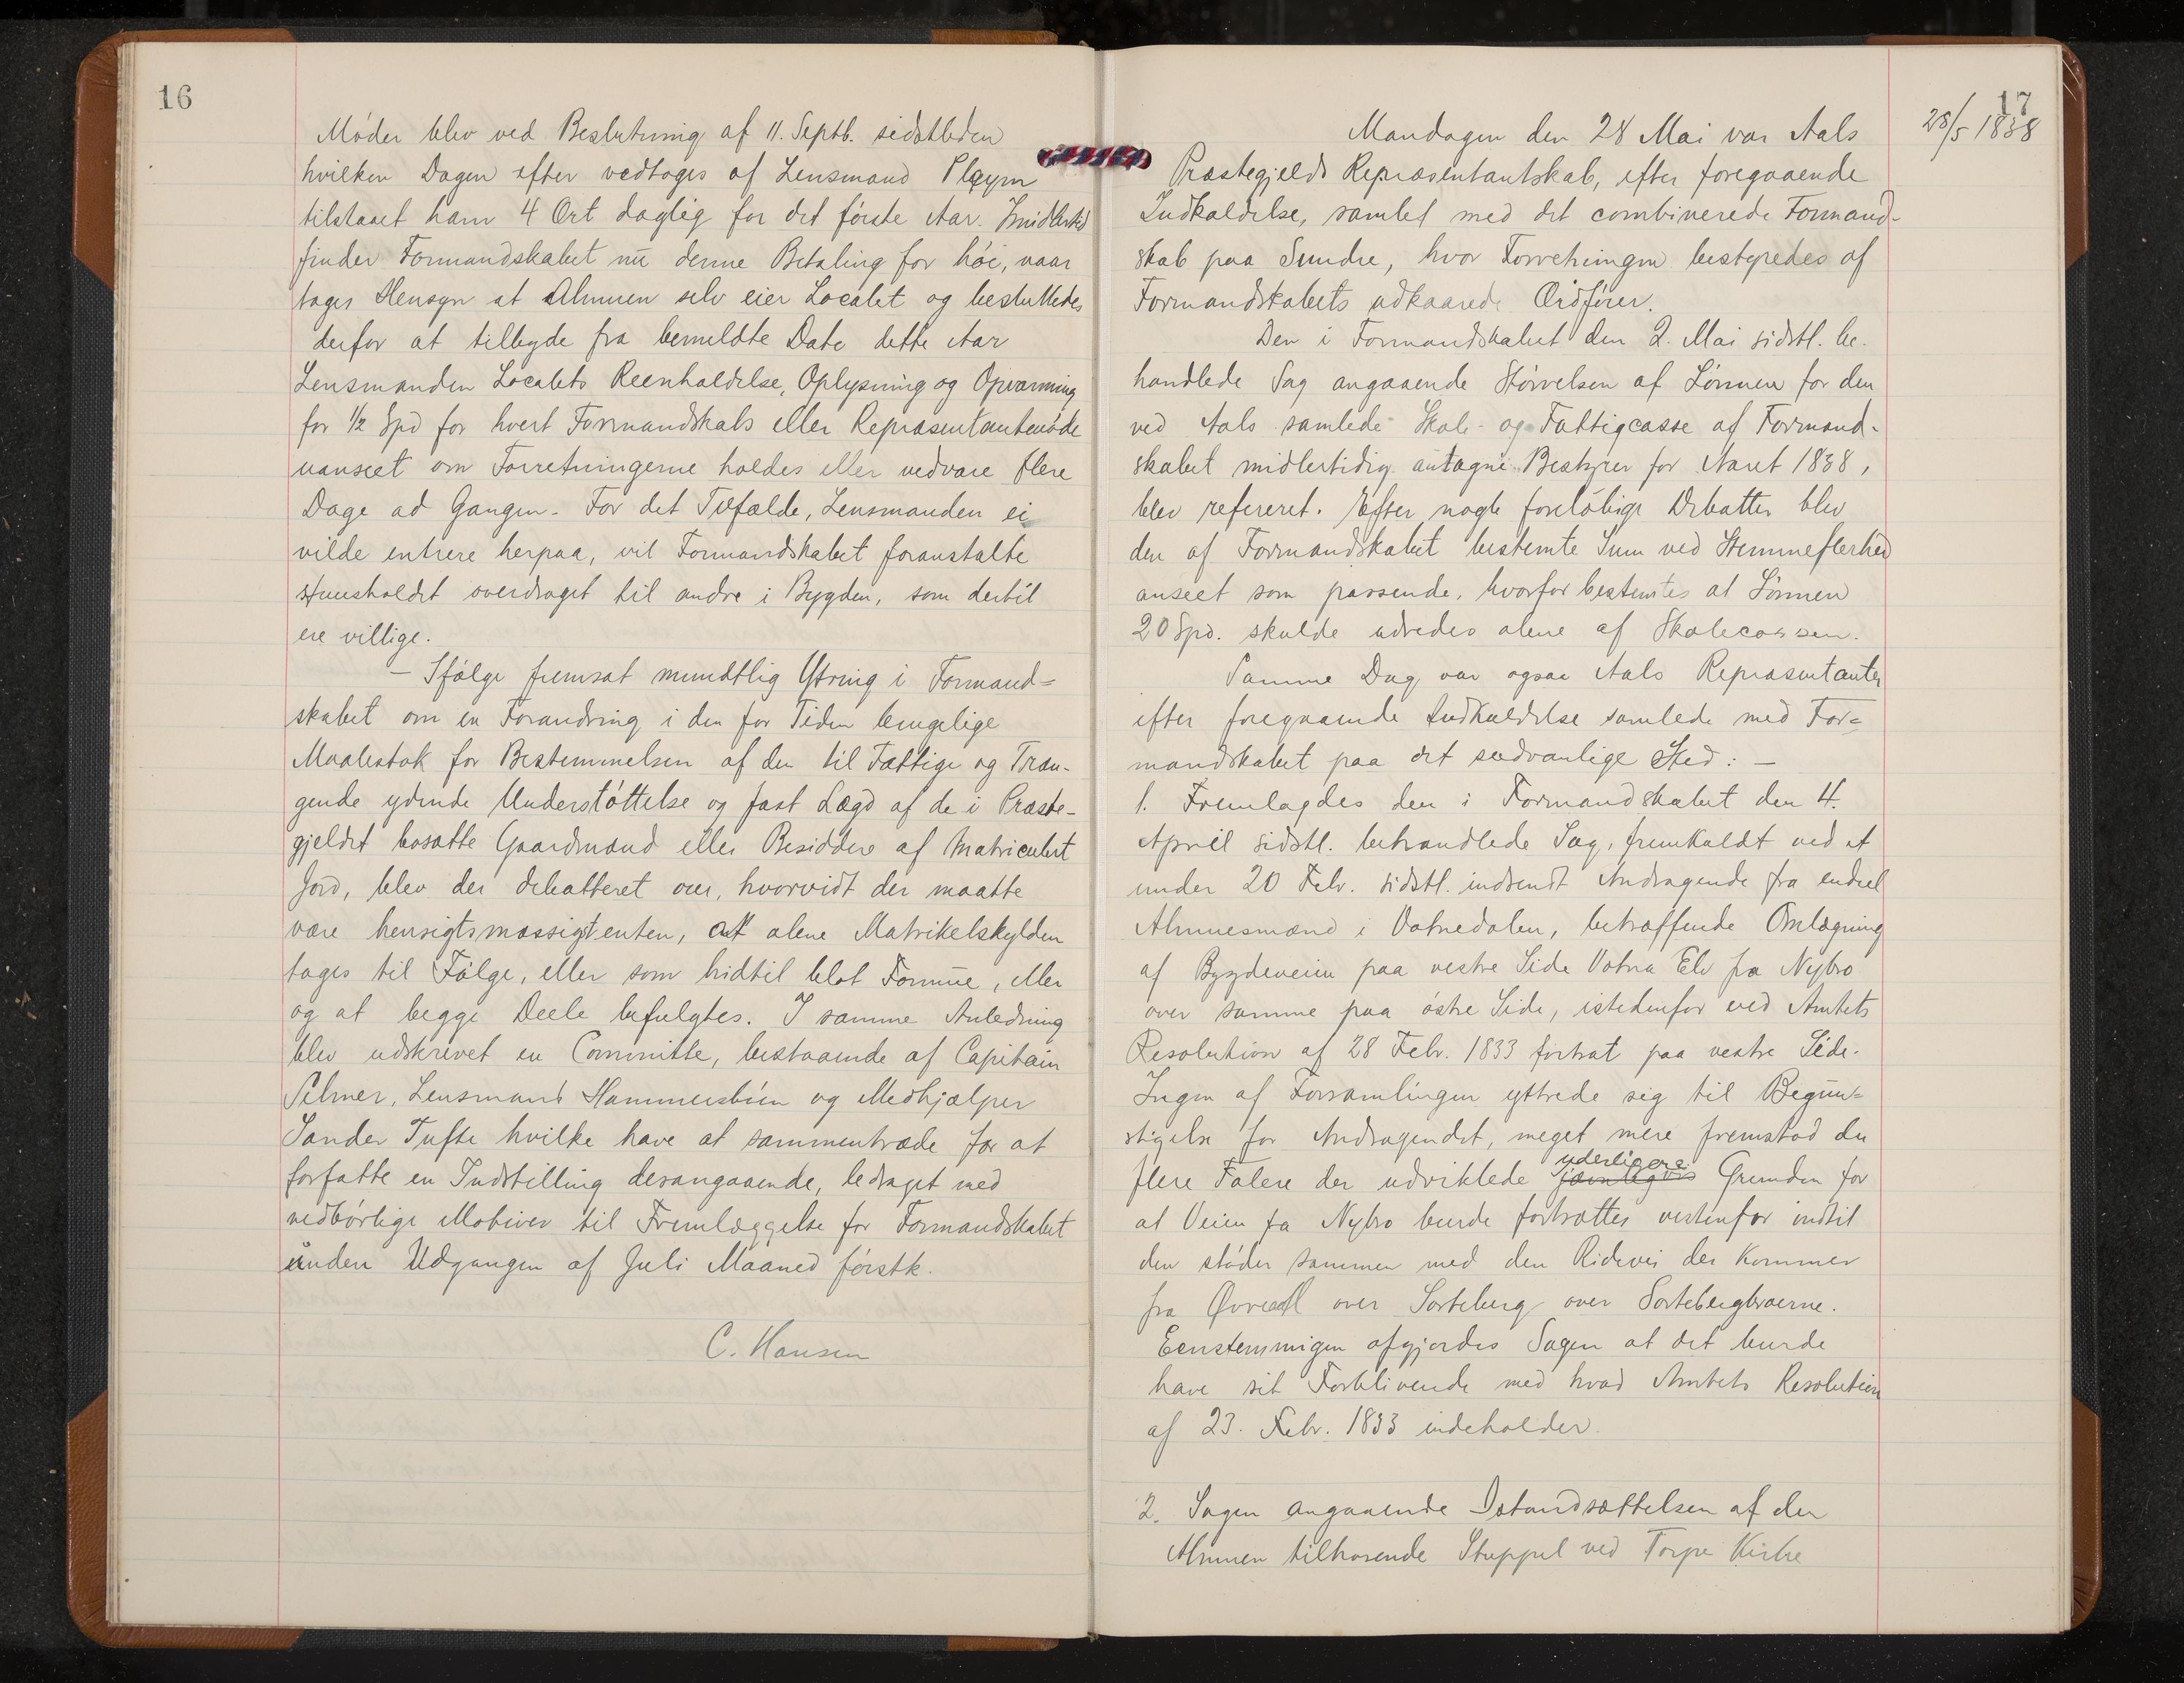 16
Møder blev ved Beslutning af 11. Septb. sidstleden
hvilken Dagen efter vedtages af Lensmand Pleym
tilstaaet ham 4 Ort daglig for det første Aar. Imidlertid
finder Formandskabet nu denne Betaling for høi, naar
tages Hensyn at Almuen selv eier Localet og besluttedes
derfor at tilbyde fra bemeldte Dato dette Aar
Lensmanden Localets Reenholdelse, Oplysning og Opvarming
for 1/2 Spd for hvert Formandskabs eller Repræsentantmøde
uanseet om Forretningerne holdes eller vedvare flere
Dage ad Gangen. For det Tilfælde, Lensmanden ei
vilde entrere herpaa, vil Formandskabet foranstalte
Huusholdet overdraget til andre i Bygden, som dertil
ere villige.
– Ifølge fremsat mundtlig Ytring i Formand=
skabet om en Forandring i den for Tiden brugelige
Maalestok for Bestemmelsen af den til Fattige og Træn-
gende ydende Understøttelse og fast Lægd af de i Præste-
gjeldet bosatte Gaardmænd eller Besiddere af Matriculert
Jord, blev der debatteret over, hvorvidt der maatte
være hensigtsmæssigt enten, at alene Matrikelskylden
tages til Følge, eller som hidtil blot Formue, eller
og at begge Deele befulgtes. I samme Anledning
blev udskrevet en Committe, bestaaende af Capitain
Selmer, Lensmand Hammersbøen og Medhjælper
Sander Tufte hvilke have at sammentræde for at
forfatte en Indstilling desangaaende, ledsaget med
vedbørlige Motiver til Fremlæggelse for Formandskabet
inden Udgangen af Juli Maaned førstk.
C. Hansen
17
28/5 1838
Mandagen den 28 Mai var Aals
Præstegjelds Repræsentantskab, efter foregaaende
Indkaldelse, samlet med det combinerede Formand-
skab paa Sundre, hvor Forretningen bestyredes af
Formandskabets udkaarede Ordfører.
Den i Formandskabet den 2. Mai sidstl. be-
handlede Sag angaaende Størrelsen af Lønnen for den
ved Aals samlede Skole- og Fattigcasse af Formand-
skabet midlertidig antagne Bestyrer for Aaret 1838,
blev refereret. Efter nogle foreløbige Debatter blev
den af Formandskabet bestemte Sum ved Stemmeflerhed
anseet som passende, hvorfor bestemtes at Lønnen
20 Spd. skulde udredes alene af Skolecassen.
Samme Dag var ogsaa Aals Repræsentanter
efter foregaaende Indkaldelse samlede med For=
mandskabet paa det sædvanlige Sted: –
1. Fremlagdes den i Formandskabet den 4.
April sidstl. behandlede Sag, fremkaldt ved et
under 20 Febr. sidstl. indsendt Andragende fra endeel
Almuesmænd i Votnedalen, betræffende Omlægning
af Bygdeveien paa vestre Side Votna Elv fra Nybro
over samme paa østre Side, istedenfor ved Amtets
Resolution af 28 Febr. 1833 fortsat paa vestre Side.
Ingen af Forsamlingen yttrede sig til Begun=
stigelse for Andragendet, meget mere fremstod der
flere Talere der udviklede yderligere Grunden for
at Veien fra Nybro burde fortsættes vestenfor indtil
den støder sammen med den Ridevei der kommer
fra Øvreaal over Sorteberg over Sortebergbroerne.
Eenstemmigen afgjordes Sagen at det burde
have sit Forblivende med hvad Amtets Resolution
af 23. Febr. 1833 indeholder.
2. Sagen angaaende Istandsættelsen af den
Almuen tilhørende Støppel ved Torpe Kirke